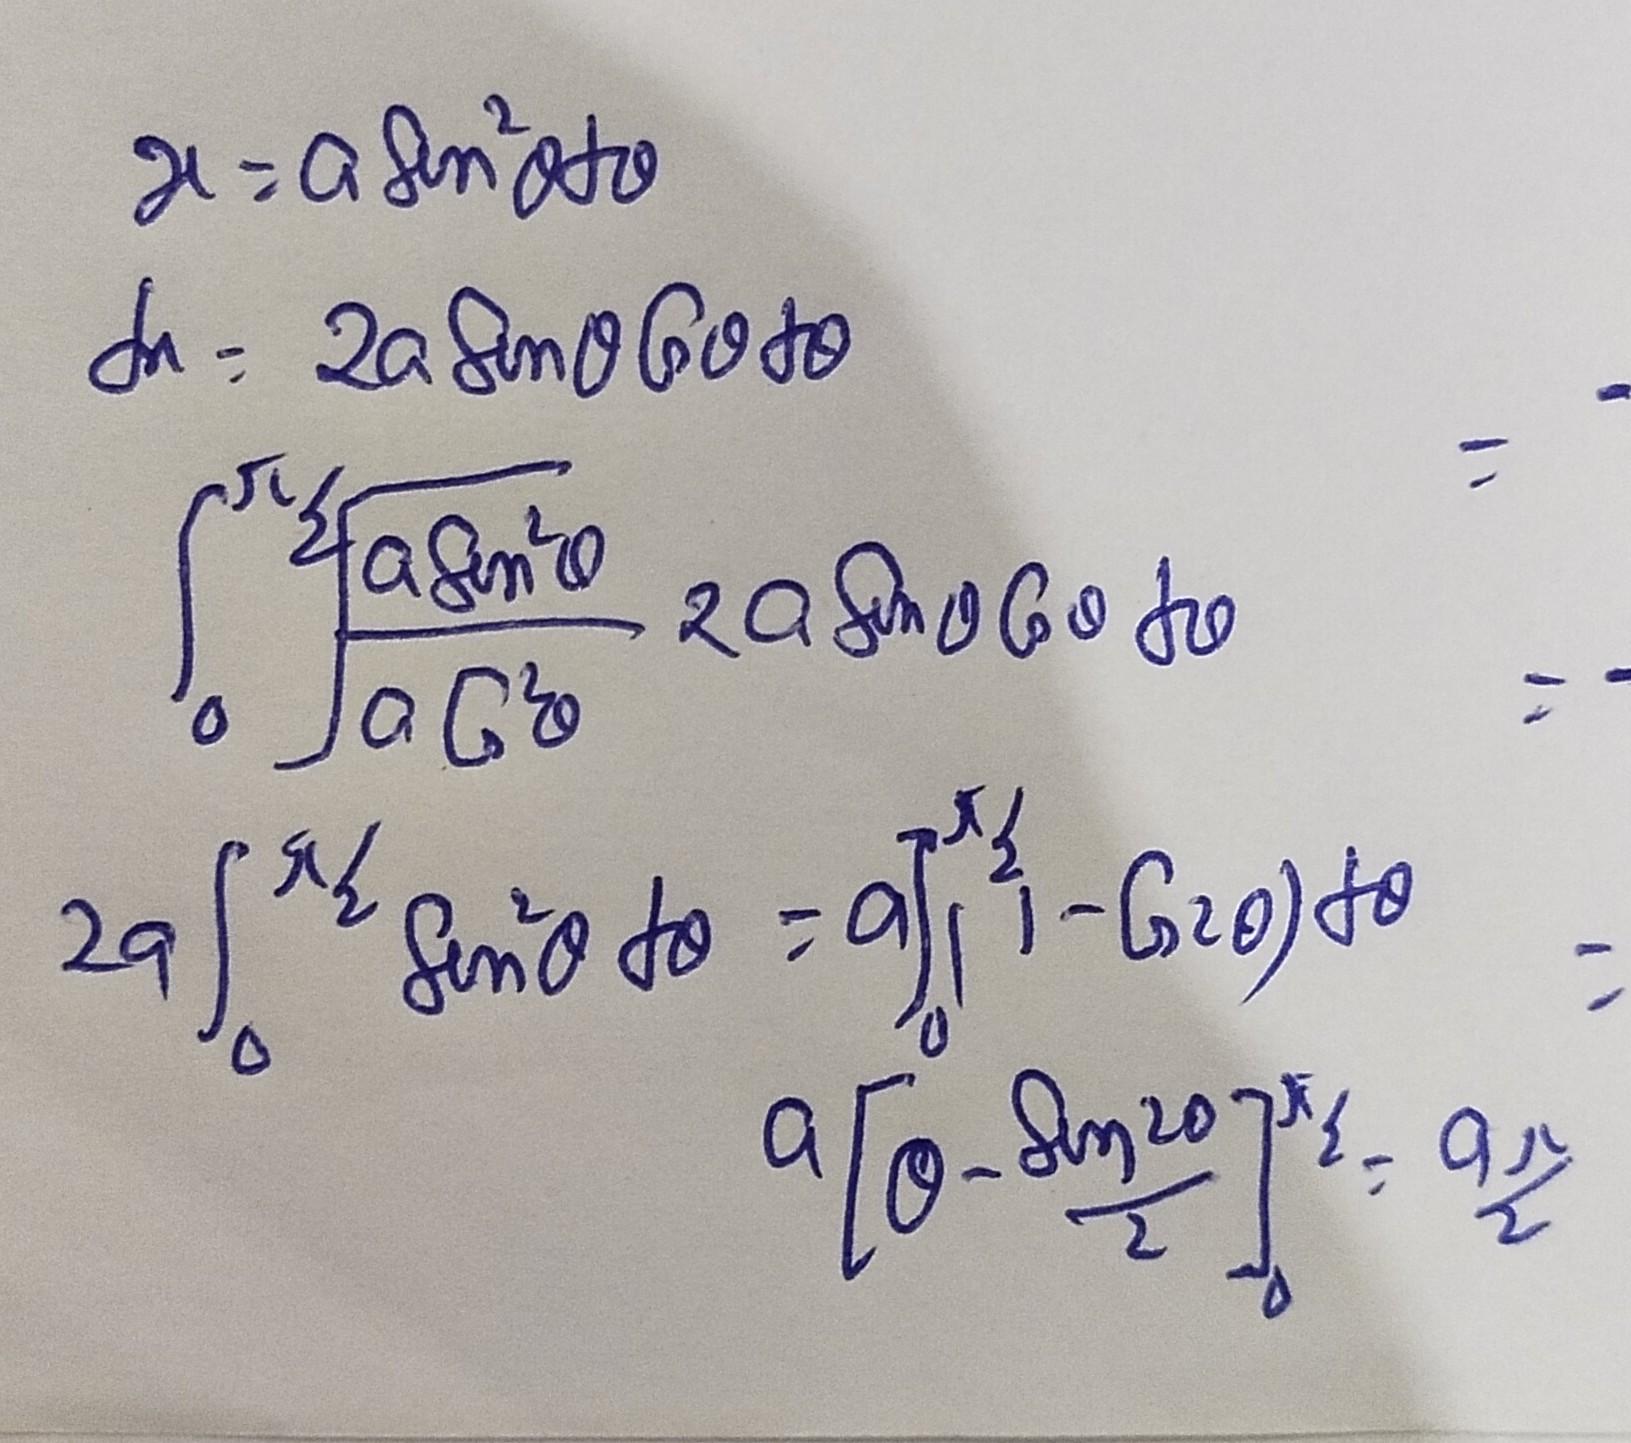 x = a sin²θdθ
dx = 2a sinθ Cosθ dθ
∫₀^(π/2) √(a sin²θ / a Cos²θ) 2a sinθ Cosθ dθ
2a ∫₀^(π/2) sin²θ dθ = a∫₀^(π/2) (1 - Cos2θ) dθ
a [θ - sin2θ/2]₀^(π/2) = aπ/2
=
=
=